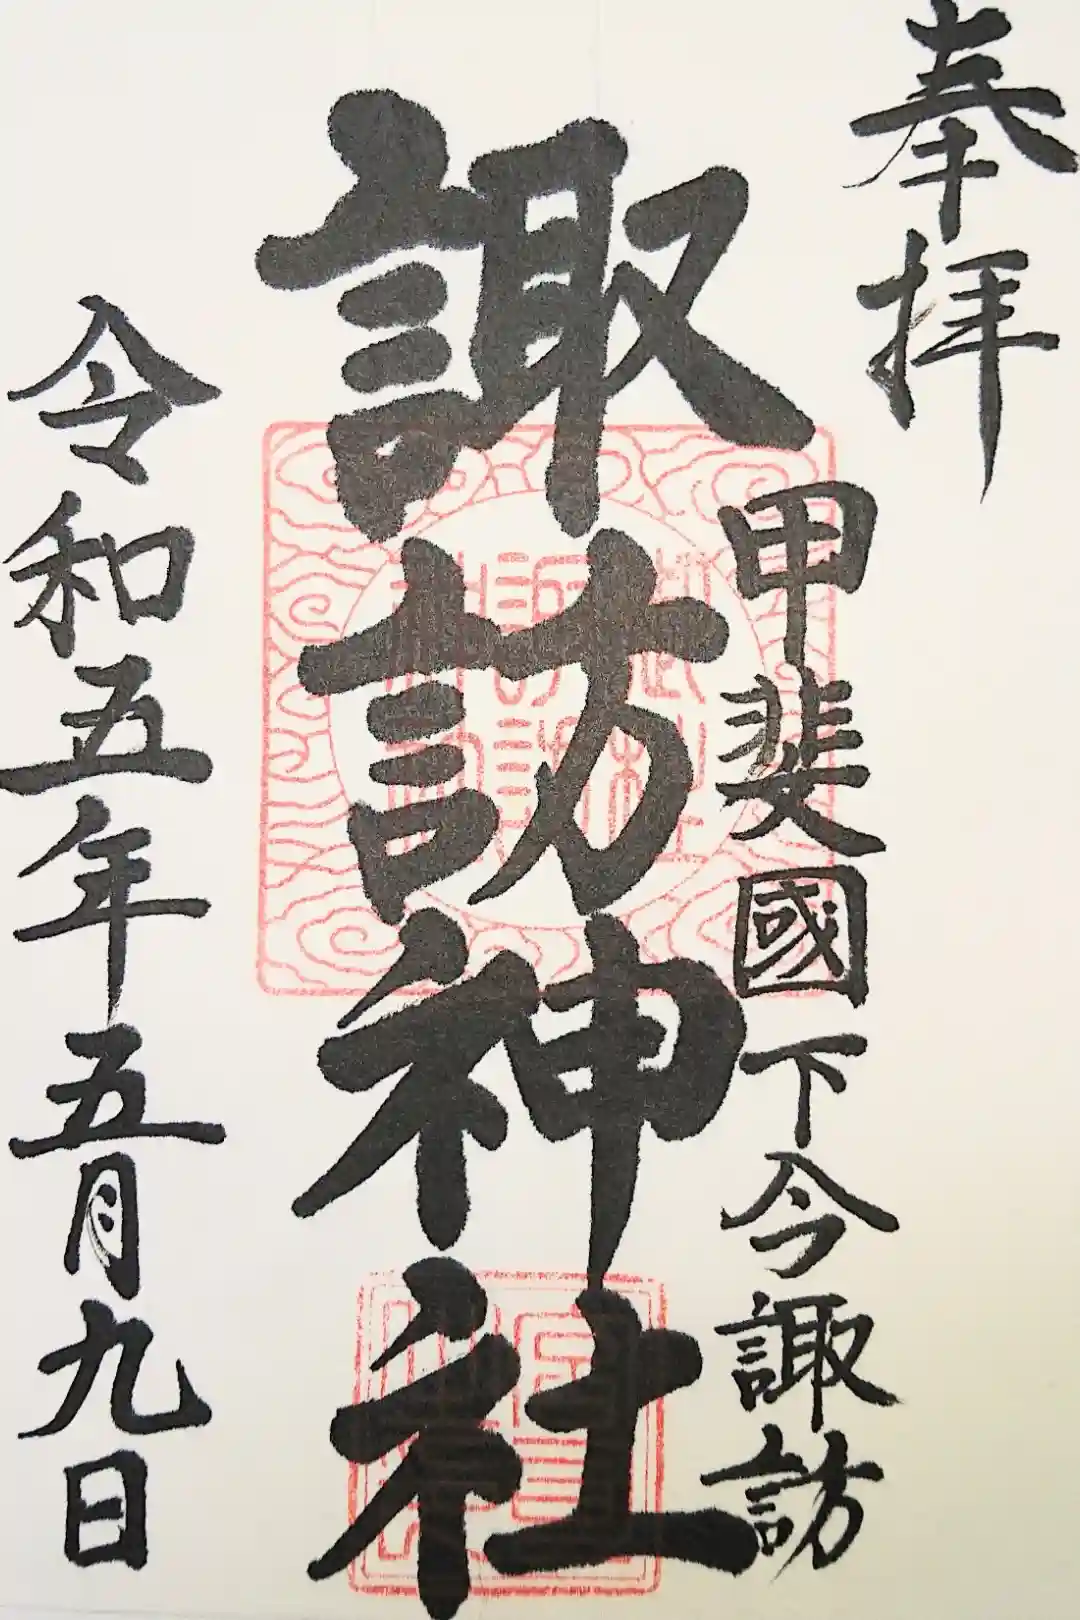 奉拝
甲斐國下今諏訪
諏訪神社
令和五年五月九日